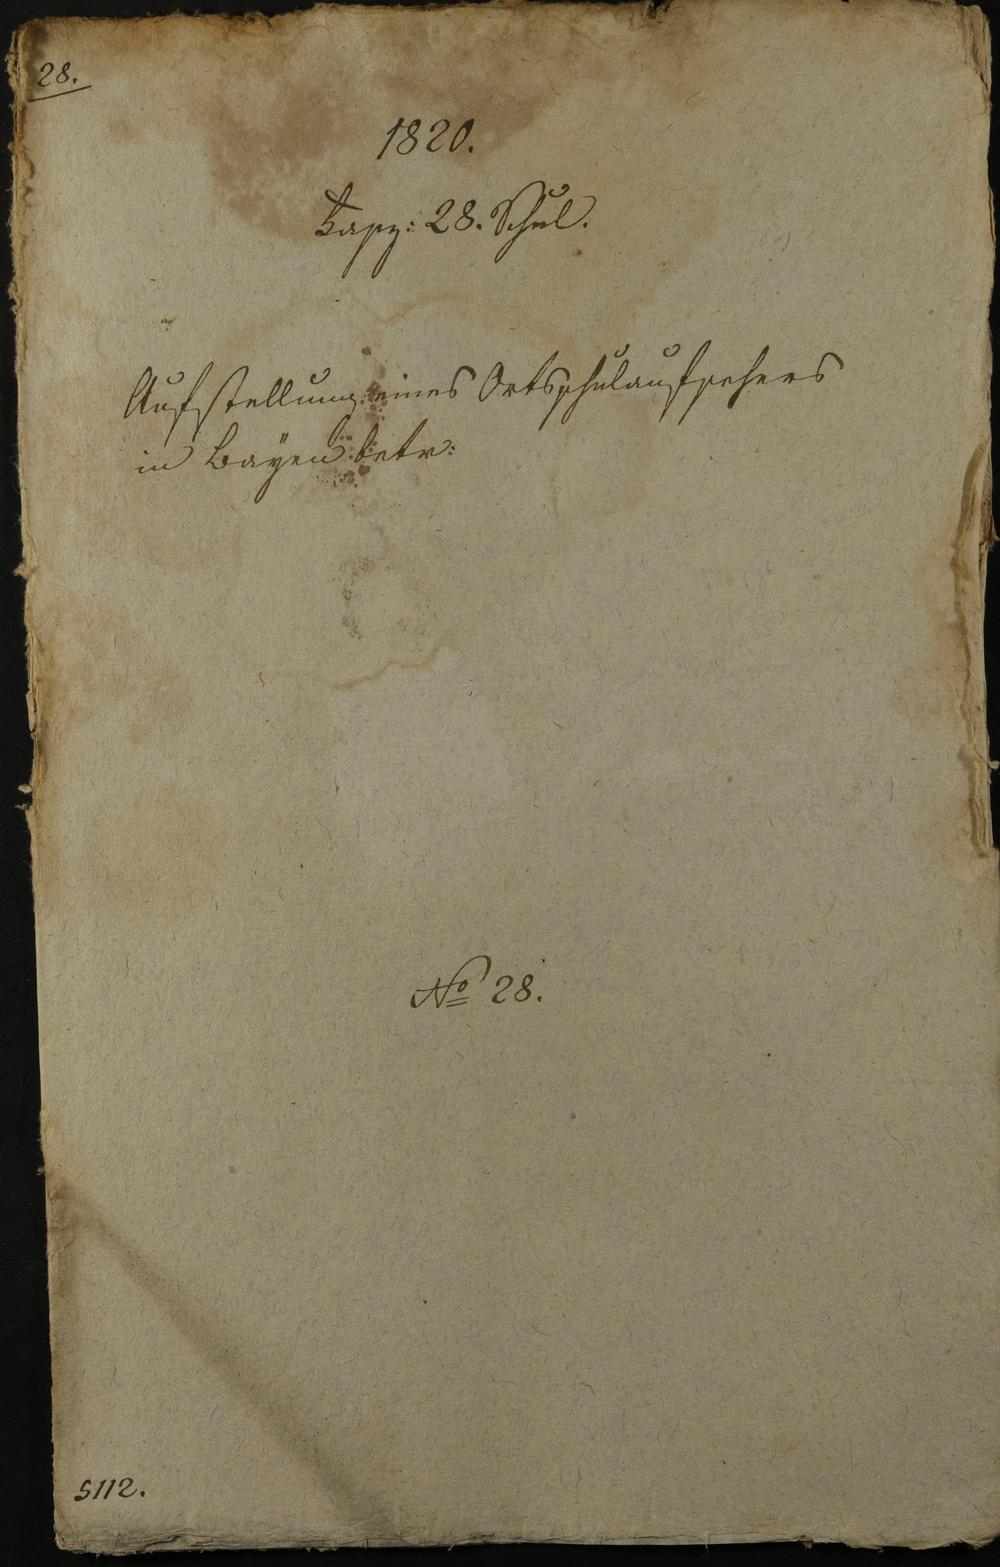 28.
1820.
Fasz: 28. Schul.
Aufstellung eines Ortsschulaufsehers
in Bayen betr:
No 28.
5112.